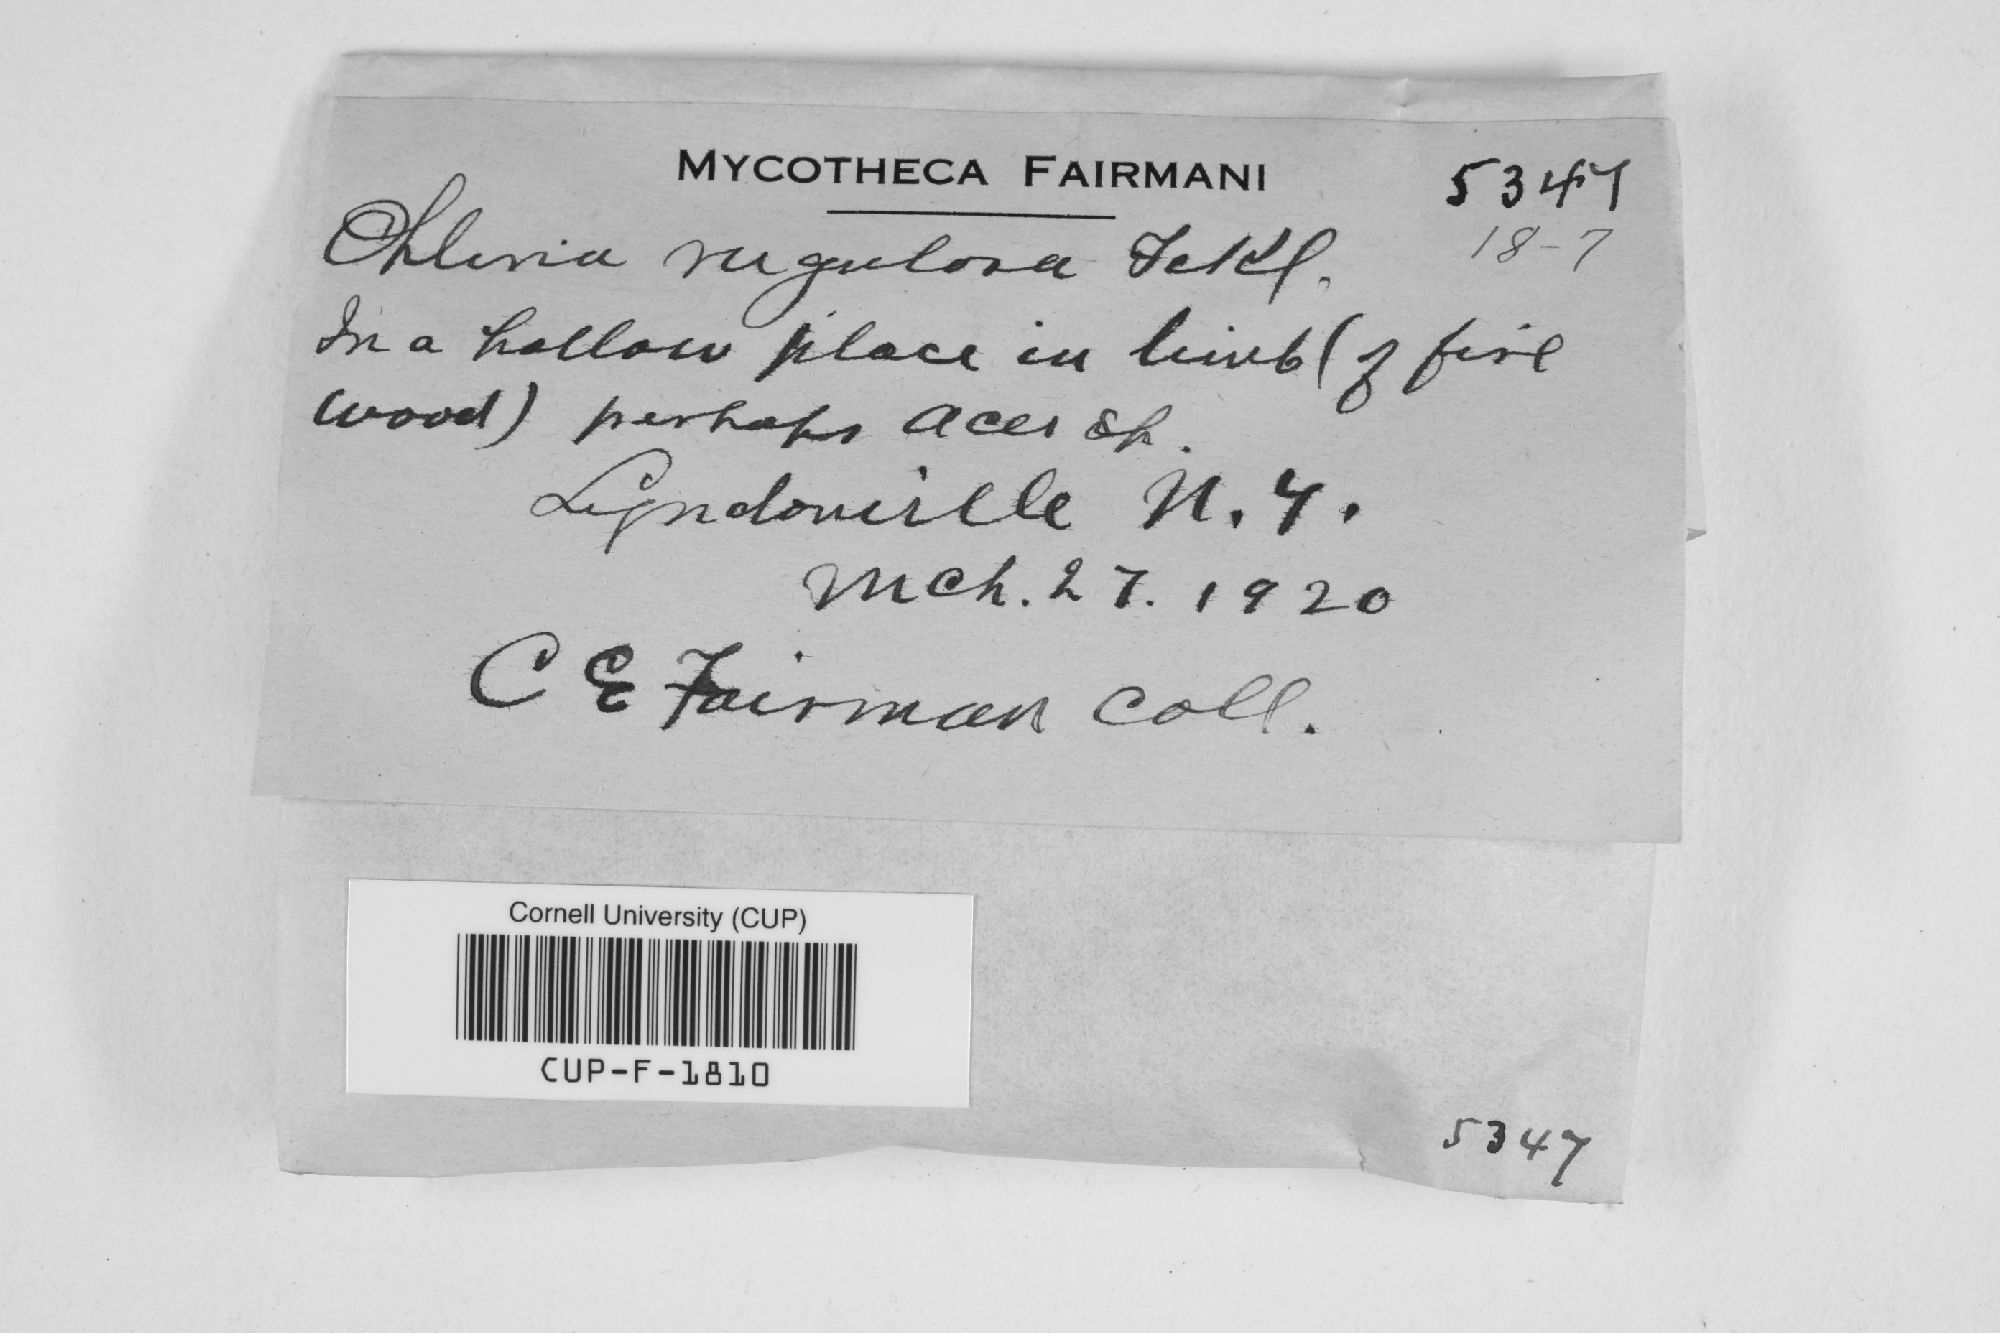 MYCOTHECA FAIRMANI
5347
18-7
Ohleria rugulosa Fckl.
In a hollow place in limb (of fire
wood) perhaps Acer sp.
Lyndonville N.Y.
Mch. 27. 1920
C E Fairman coll.
Cornell University (CUP)
CUP-F-1810
5347